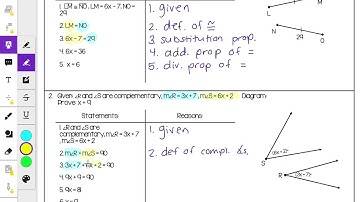 1. LM ≅ NO, LM = 6x - 7, NO = 29
1. given
2. LM = NO
2. def. of ≅
3. 6x - 7 = 29
3. substitution prop.
4. 6x = 36
4. add. prop of =
5. x = 6
5. div. prop of =
L
M
N
O
29
2. Given: ∠R and ∠S are complementary, m∠R = 3x + 7, m∠S = 6x + 2
Prove: x = 9
Diagram
Statements
Reasons
1. ∠R and ∠S are complementary, m∠R = 3x + 7, m∠S = 6x + 2
1. given
2. m∠R + m∠S = 90
2. def of compl. ∠s.
3. 3x + 7 + 6x + 2 = 90
4. 9x + 9 = 90
5. 9x = 81
S
(6x + 2)°
R
(3x + 7)°